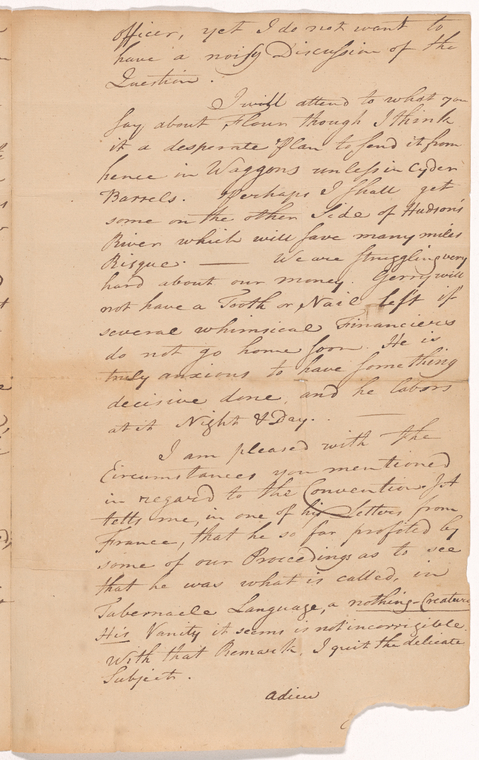 officer, yet I do not want to
have a noisy Discussion of the
Question.
I will attend to what you
say about Flour though I think
it a desperate Plan to send it from
hence in Waggons unless in Cyder
Barrels. Perhaps I shall get
some on the other Side of Hudson's
River which will save many miles
Risque. — We are struggling very
hard about our money. Gerry will
not have a Tooth or Nail left if
several whimsical Financiers
do not go home soon. He is
truly anxious to have something
decisive done, and he labors
at it Night & Day. —
I am pleased with the
Circumstances you mentioned
in regard to the Convention. J A
tells me, in one of his Letters from
France, that he so far profited by
some of our Proceedings as to see
that he was what is called, in
Tabernacle Language, a nothing-Creature
His Vanity it seems is not incorrigible.
With that Remark, I quit the delicate
Subject.
adieu